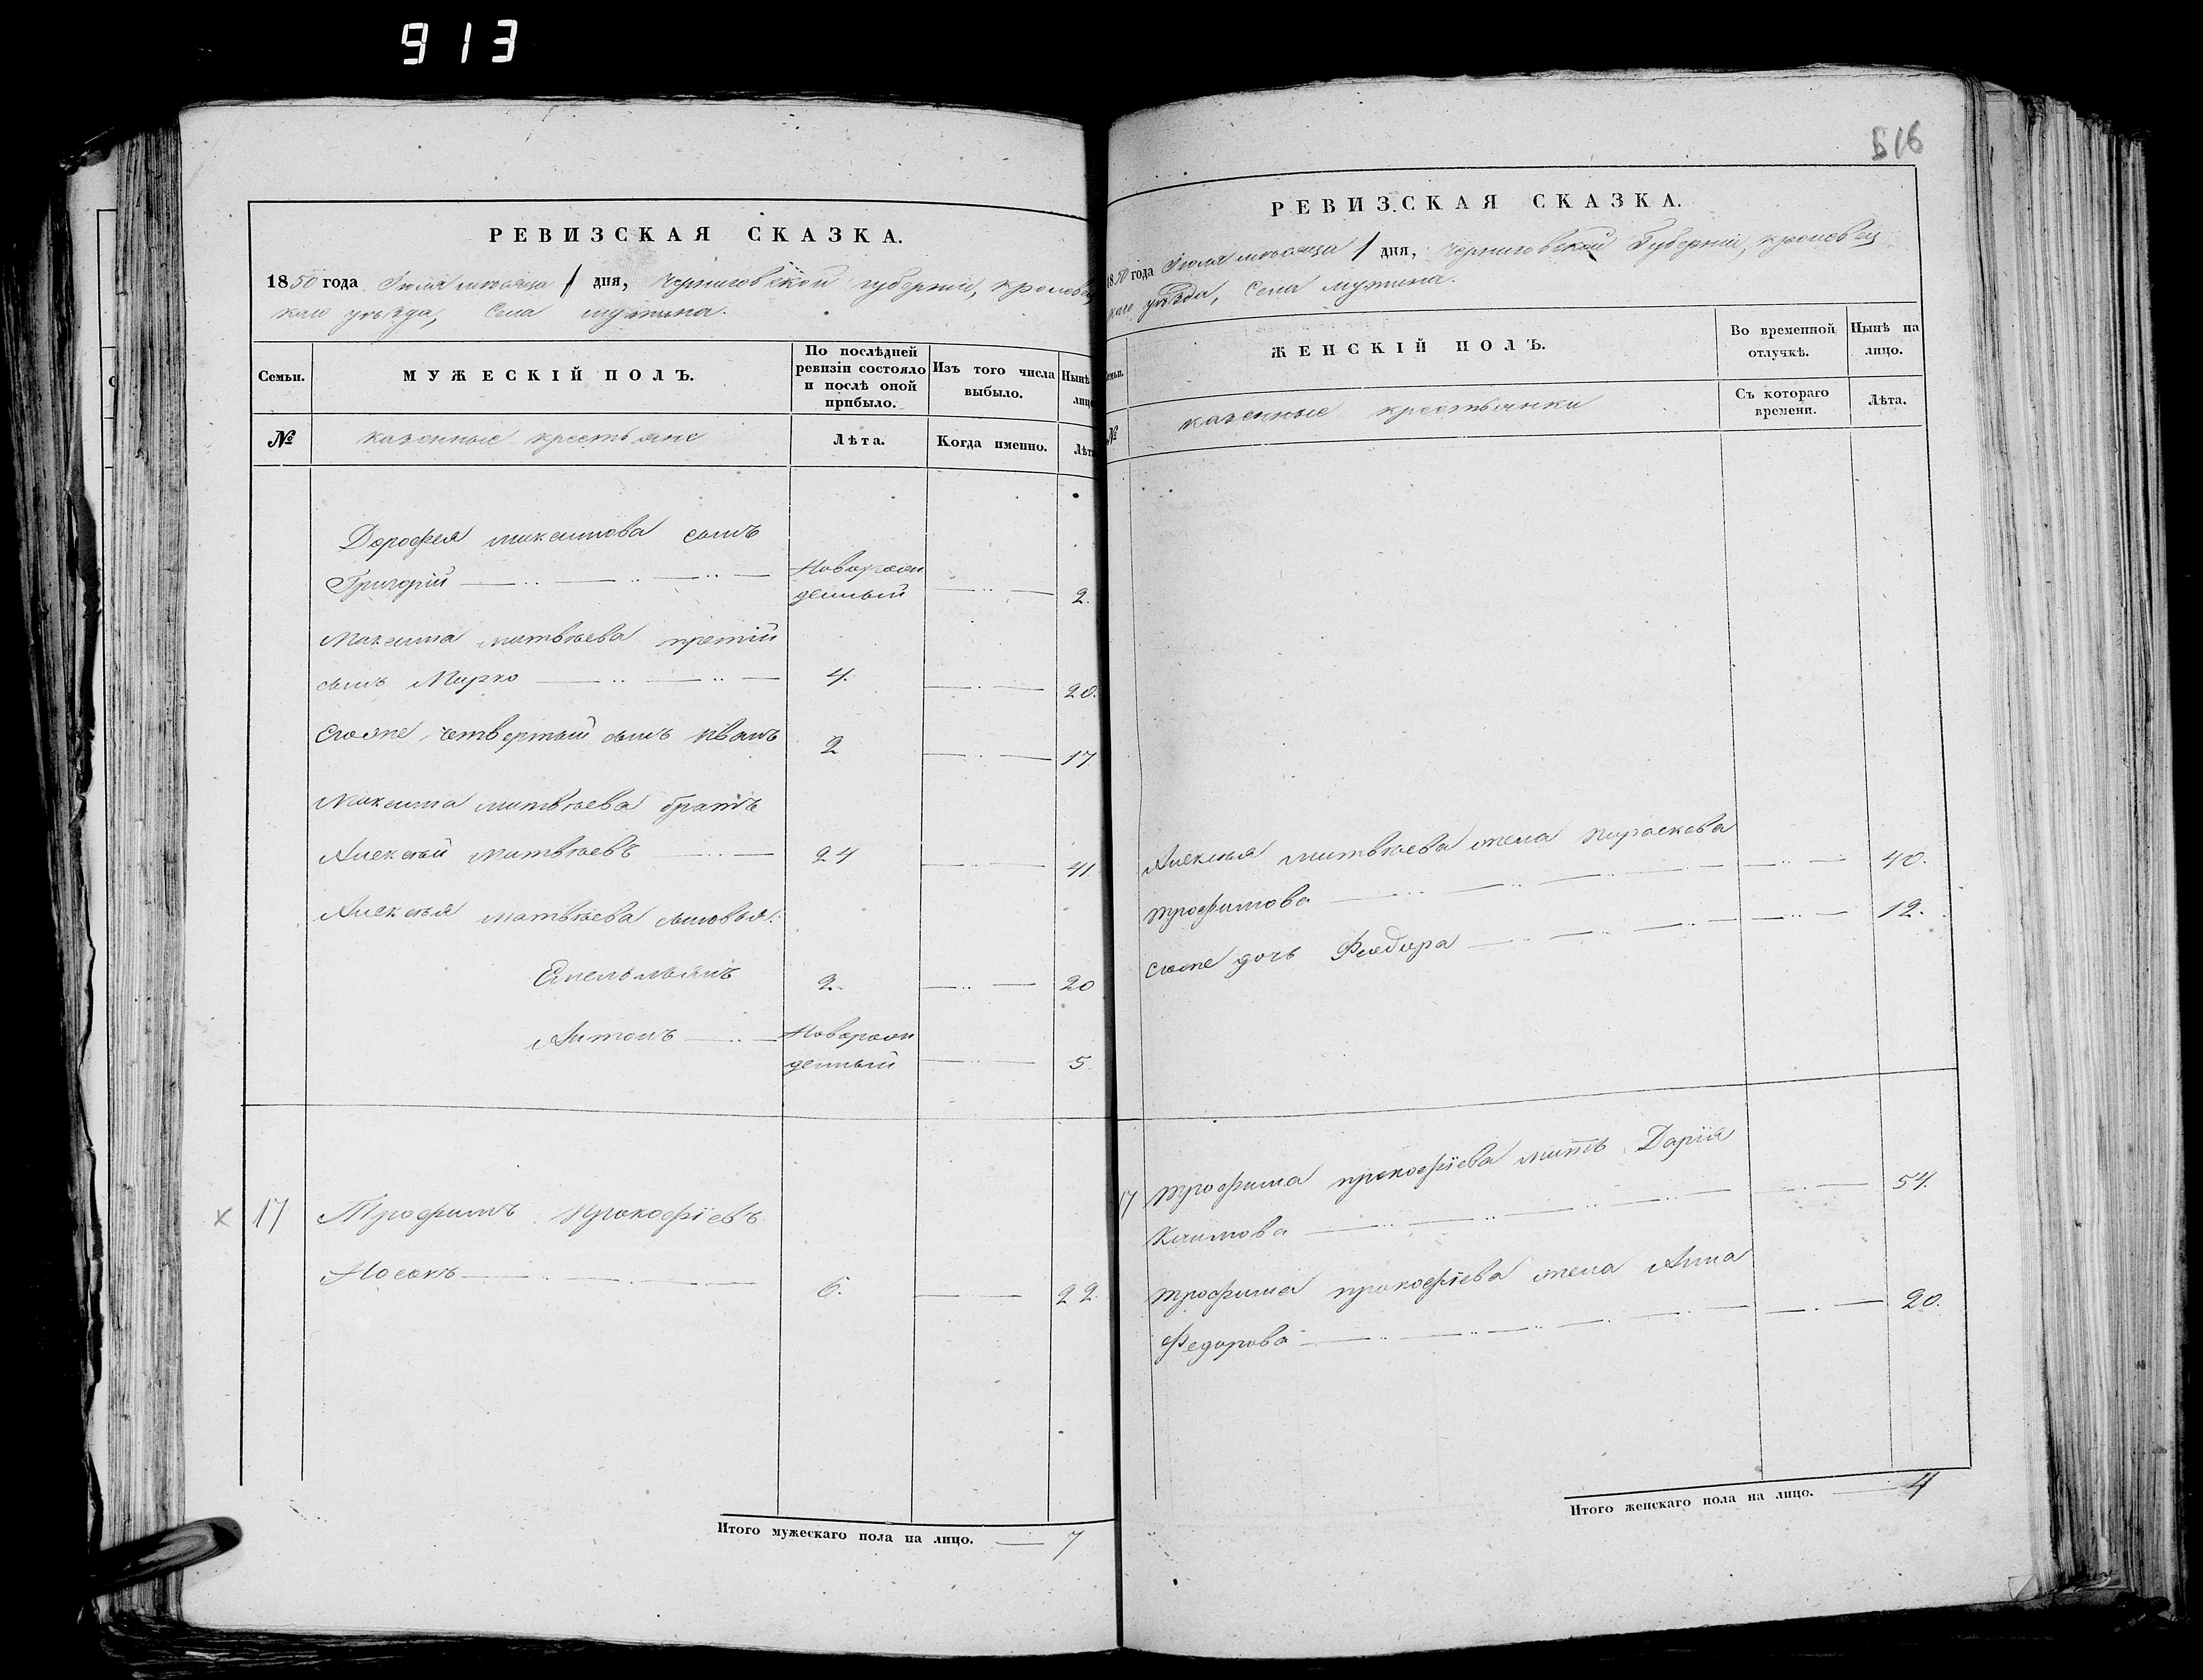 913
516
РЕВИЗСКАЯ СКАЗКА.
1850 года Іюля мѣсяца 1 дня, Черниговской губерніи, кролевец
каго уѣзда, Села мутина.
Семьи.
МУЖЕСКІЙ ПОЛЪ.
По послѣдней ревизіи состояло и послѣ оной прибыло.
Изъ того числа выбыло.
Нынѣ
лицо
№
казенные крестьяне
Лѣта.
Когда именно.
Лѣта
Дорофея максимова сынъ
Григорій Новорож
денный 2.
Максима матвѣева третій
сынъ Марко 4. 20.
Егоже четвертый сынъ Иванъ 2 17
Максима матвѣева братъ
Алексѣй матвѣевъ 24 41
Алексѣя матвѣева сыновья:
Емельянъ 2. 20
Антонъ Новорож
денный 5
17 Трофимъ Прокофіевъ
Носокъ 6. 22.
Итого мужескаго пола на лицо. 7
РЕВИЗСКАЯ СКАЗКА.
1850 года Іюля мѣсяца 1 дня, Черниговской Губерніи, кролевец
каго уѣзда, Села мутина.
Семьи.
ЖЕНСКІЙ ПОЛЪ.
Во временной отлучкѣ.
Нынѣ на лицо.
№
казенные крестьянки
Съ котораго времени.
Лѣта.
Алексѣя матвѣева жена параскева
трофимова 40.
Егоже дочь 12.
17 трофима прокофіева мать Дарія
Климова 54.
трофима прокофіева жена Анна
Федорова 20.
Итого женскаго пола на лицо. 4